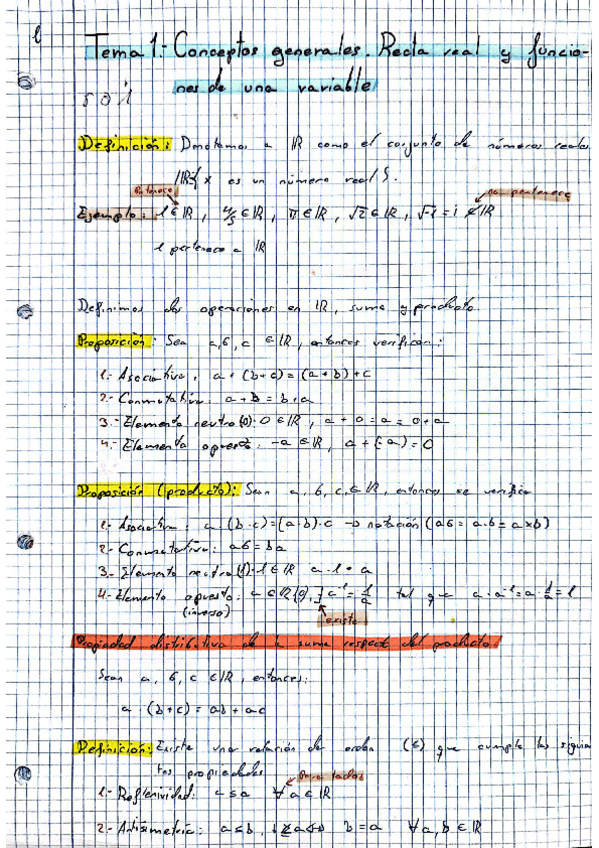 1
Tema 1:- Conceptos generales. Recta real y funcio-
nes de una variable
Definición: Denotamos a ℝ como el conjunto de números reales
ℝ{ x es un número real }.
Pertenece
no pertenece
Ejemplo: 1 ∈ ℝ, 4/3 ∈ ℝ, π ∈ ℝ, √2 ∈ ℝ, √-1 = i ∉ ℝ
1 pertenece a ℝ
Definimos dos operaciones en ℝ, suma y producto.
Proposición: Sea a,b,c ∈ ℝ, entonces verifican:
1.- Asociativa: a + (b+c) = (a+b)+c
2.- Conmutativa: a+b = b+a
3.- Elemento neutro (0): 0 ∈ ℝ, a + 0 = a = 0 + a
4.- Elemento opuesto: -a ∈ ℝ, a + (-a) = 0
Proposición (producto): Sean a, b, c, ∈ ℝ, entonces se verifica
1.- Asociativa: a·(b·c) = (a·b)·c → notación (ab = a·b = a×b)
2.- Conmutativa: ab = ba
3.- Elemento neutro (1): 1 ∈ ℝ a·1 = a
4.- Elemento opuesto: a ∈ ℝ\{0}, ∃ a⁻¹ = 1/a tal que a·a⁻¹ = a·1/a = 1
(inverso)
existe
Propiedad distributiva de la suma respect del producto
Sean a, b, c ∈ ℝ, entonces:
a·(b+c) = ab + ac
Definición: Existe una relación de orden (≤) que cumple las siguien
tes propiedades
Para todos
1.- Reflexividad: a ≤ a ∀ a ∈ ℝ
2.- Antisimetría: a ≤ b, b ≤ a ⇔ b = a ∀ a, b ∈ ℝ